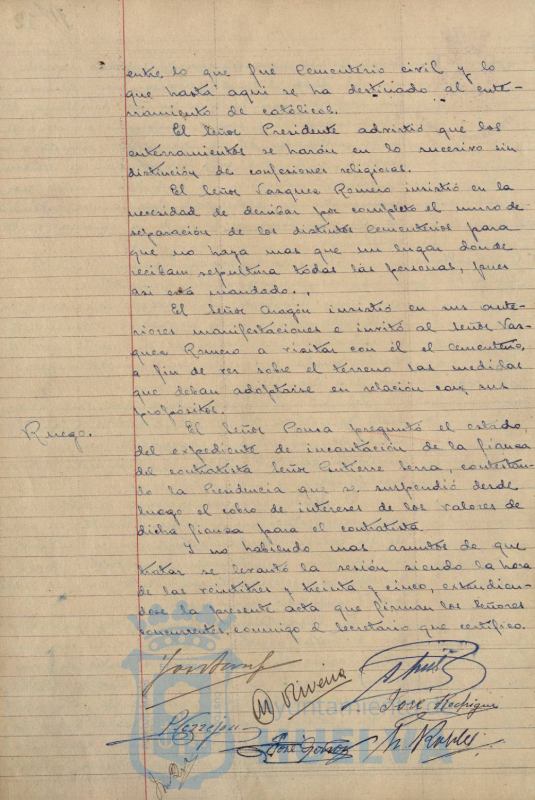 entre lo que fué Cementerio civil y lo
que hasta aqui se ha destinado al ente-
rramiento de católicos.
El Señor Presidente advirtió que los
enterramientos se harán en lo sucesivo sin
distinción de confesiones religiosas.
El Señor Vasquez Romero insistió en la
necesidad de derribar por completo el muro de
separación de los distintos Cementerios para
que no haya mas que un lugar donde
reciban sepultura todas las personas, pues
asi está mandado.
El Señor Aragón insistió en sus ante-
riores manifestaciones e invitó al Señor Vas-
quez Romero a visitar con él el Cementerio,
a fin de ver sobre el terreno las medidas
que deban adoptarse en relación con sus
propósitos.
Ruego.
El Señor Ponsa preguntó el estado
del expediente de incautación de la fianza
del contratista Señor Gutierre Serra, contestan-
do la Presidencia que se suspendió desde
luego el cobro de intereses de los valores de
dicha fianza para el contratista.
Y no habiendo mas asuntos de que
tratar se levantó la sesión siendo la hora
de las veintitres y treinta y cinco, extendien-
dose la presente acta que firman los Señores
concurrentes, conmigo el Secretario que certifico.
M Oliveira
José Rodriguez
José Gomez
Ayuntamiento de
HUELVA